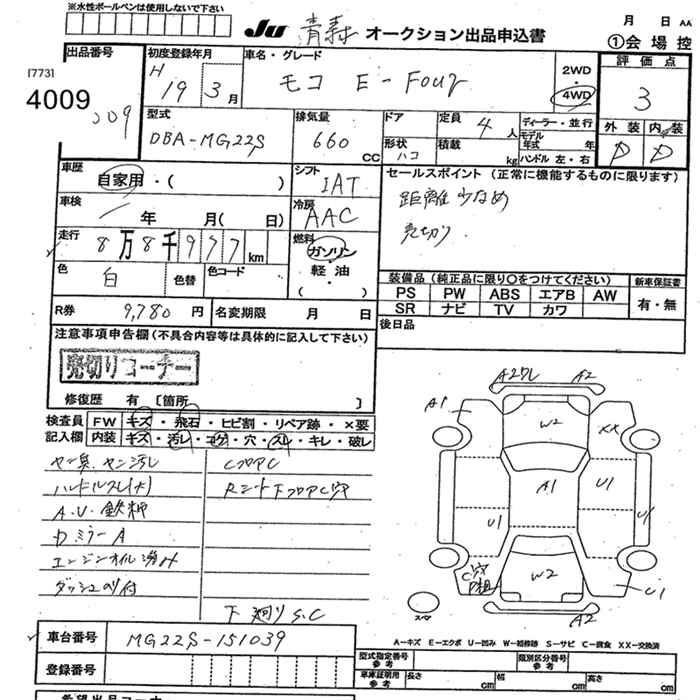 ※水性ボールペンは使用しないで下さい
JU 青森 オークション出品申込書
月 日 AA
①会場控
出品番号
[773]
4009
209
初度登録年月
H 19 3 月
車名・グレード
モコ E-Four
2WD
4WD
評価点
3
型式
DBA-MG22S
排気量
660 CC
ドア
形状
ハコ
定員 4 人
積載 kg
ディーラー・並行
モデル年式 年
ハンドル 左・右
外装 内装
D D
車歴
自家用・( )
シフト
IAT
セールスポイント (正常に機能するものに限ります)
距離少なめ
売切り
車検
年 月( 日)
冷房
AAC
走行
8万8千977km
燃料
ガソリン
軽・油
( )
色
白
色替
色コード
装備品 (純正品に限り○をつけてください)
新車保証書
PS PW ABS エアB AW
SR ナビ TV カワ
有・無
R券 9,780 円
名変期限 月 日
後日品
注意事項申告欄 (不具合内容等は具体的に記入して下さい)
売切りコーナー
修復歴 有 [箇所 ]
検査員記入欄
FW キズ・飛石・ヒビ割・リペア跡・×要
内装 キズ・汚レ・コゲ・穴・スレ・キレ・破レ
ハンドルスレ(大)
A.U.鉄柄
DミラーA
エンジンオイル滲み
CフロアC
下廻りS.C
A2ワレ A2
A1
W2
XX
A1
U1
U1
U1
C穴
W2
U1
A2
スペア
A-キズ E-エクボ U-凹み W-補修跡 S-サビ C-腐食 XX-交換済
車台番号
MG22S-151039
登録番号
型式指定番号 参考
類別区分番号 参考
車庫証明用 参考
長さ cm
幅 cm
高さ cm
希望出品コーナー